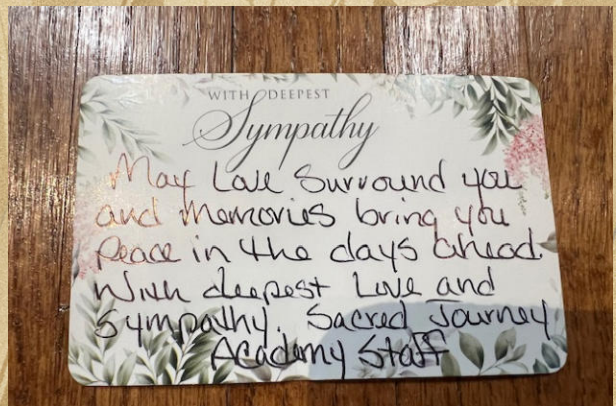 WITH DEEPEST
Sympathy
May Love Surround you
and Memories bring you
Peace in the days ahead.
With deepest Love and
Sympathy. Sacred Journey
Academy Staff